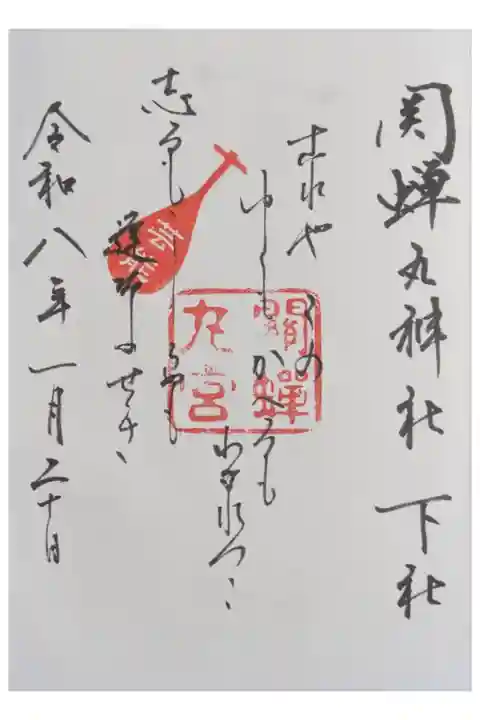 関蝉丸神社 下社
これや この
ゆくも かへるも
わかれつゝ
志るも しらぬも
逢坂のせき
令和八年一月二十日
芸能
關蟬
丸宮